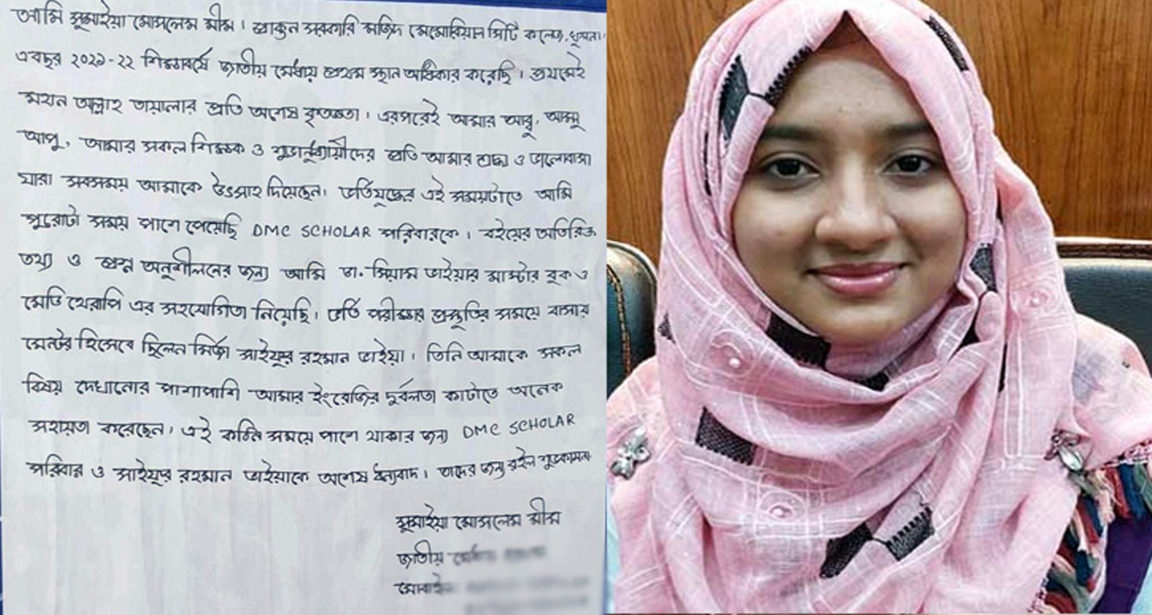 আমি সুমাইয়া মোসলেম মীম। প্রাক্তন সরকারি মজিদ মেমোরিয়াল সিটি কলেজ, খুলনা।
এবছর ২০২১-২২ শিক্ষাবর্ষে জাতীয় মেধায় প্রথম স্থান অধিকার করেছি। প্রথমেই
মহান আল্লাহ তায়ালার প্রতি অশেষ কৃতজ্ঞতা। এরপরেই আমার আব্বু, আম্মু
আপু, আমার সকল শিক্ষক ও শুভানুধ্যায়ীদের প্রতি আমার শ্রদ্ধা ও ভালোবাসা
যারা সবসময় আমাকে উৎসাহ দিয়েছেন। ভর্তিযুদ্ধের এই সময়টাতে আমি
পুরোটা সময় পাশে পেয়েছি DMC SCHOLAR পরিবারকে। বইয়ের অতিরিক্ত
তথ্য ও প্রশ্ন অনুশীলনের জন্য আমি ডা. সিয়াম ভাইয়ার মাস্টার বুক ও
মেডি থেরাপি এর সহযোগিতা নিয়েছি। ভর্তি পরীক্ষার প্রস্তুতির সময়ে বাসায়
মেন্টর হিসেবে ছিলেন মির্জা সাইদুর রহমান ভাইয়া। তিনি আমাকে সকল
বিষয় দেখানোর পাশাপাশি আমার ইংরেজির দুর্বলতা কাটাতে অনেক
সহায়তা করেছেন। এই কঠিন সময়ে পাশে থাকার জন্য DMC SCHOLAR
পরিবার ও সাইদুর রহমান ভাইয়াকে অশেষ ধন্যবাদ। তাদের জন্য রইল শুভকামনা
সুমাইয়া মোসলেম মীম
জাতীয়